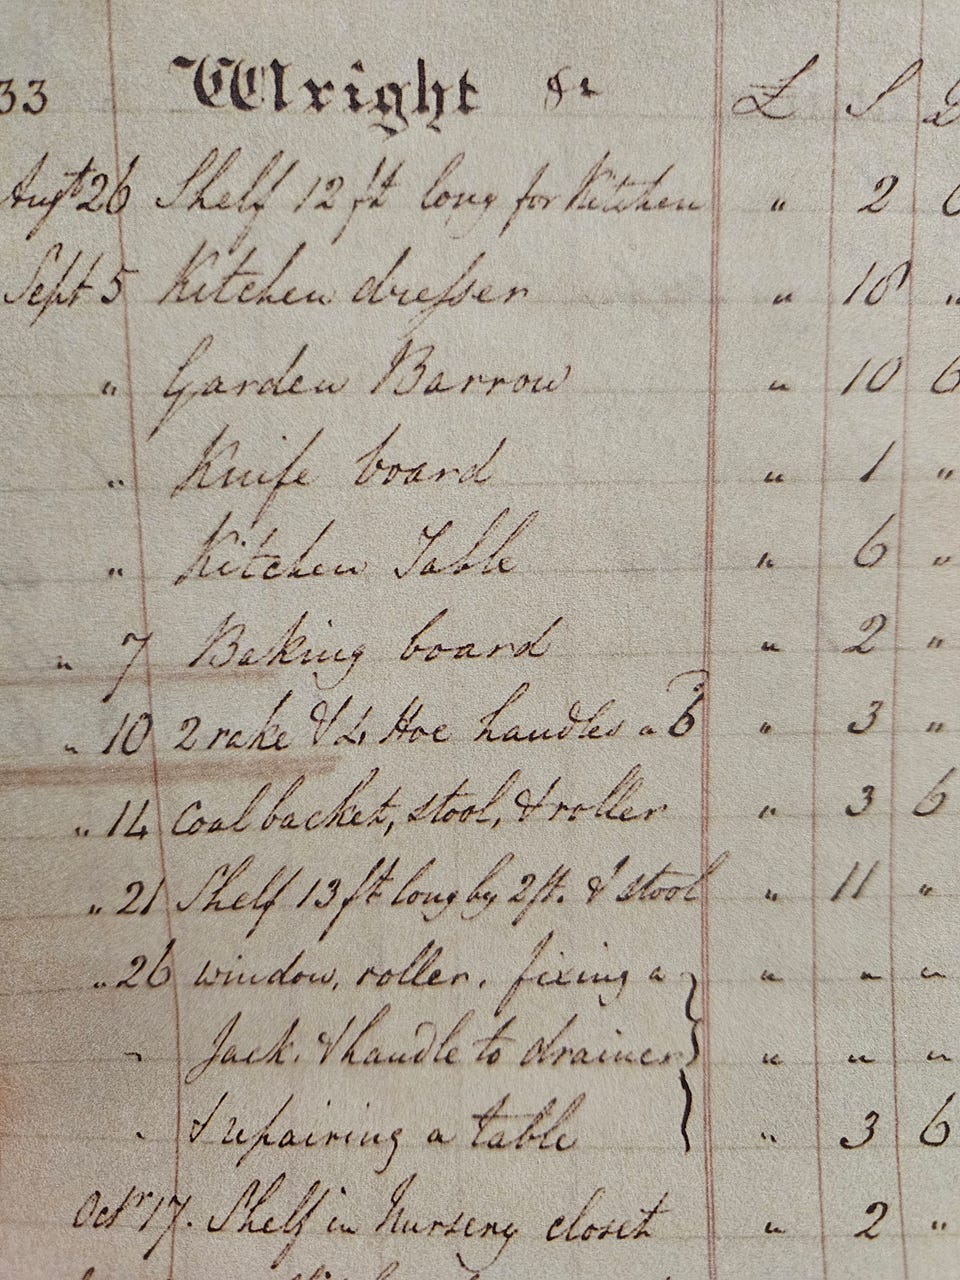 33 Wright & L S D
Augt 26 Shelf 12 ft long for Kitchen " 2 6
Sept 5 Kitchen dresser " 18 "
" Garden Barrow " 10 6
" Knife board " 1 "
" Kitchen Table " 6 "
" 7 Baking board " 2 "
" 10 2 rake & 4 Hoe handles a 6 " 3 "
" 14 Coal backet, stool, & roller " 3 6
" 21 Shelf 13 ft long by 2 ft. & stool " 11 "
" 26 window, roller, fixing a " " "
" Jack. & handle to drainer " " "
" & repairing a table " 3 6
Octr 17. Shelf in Nursery closet " 2 "